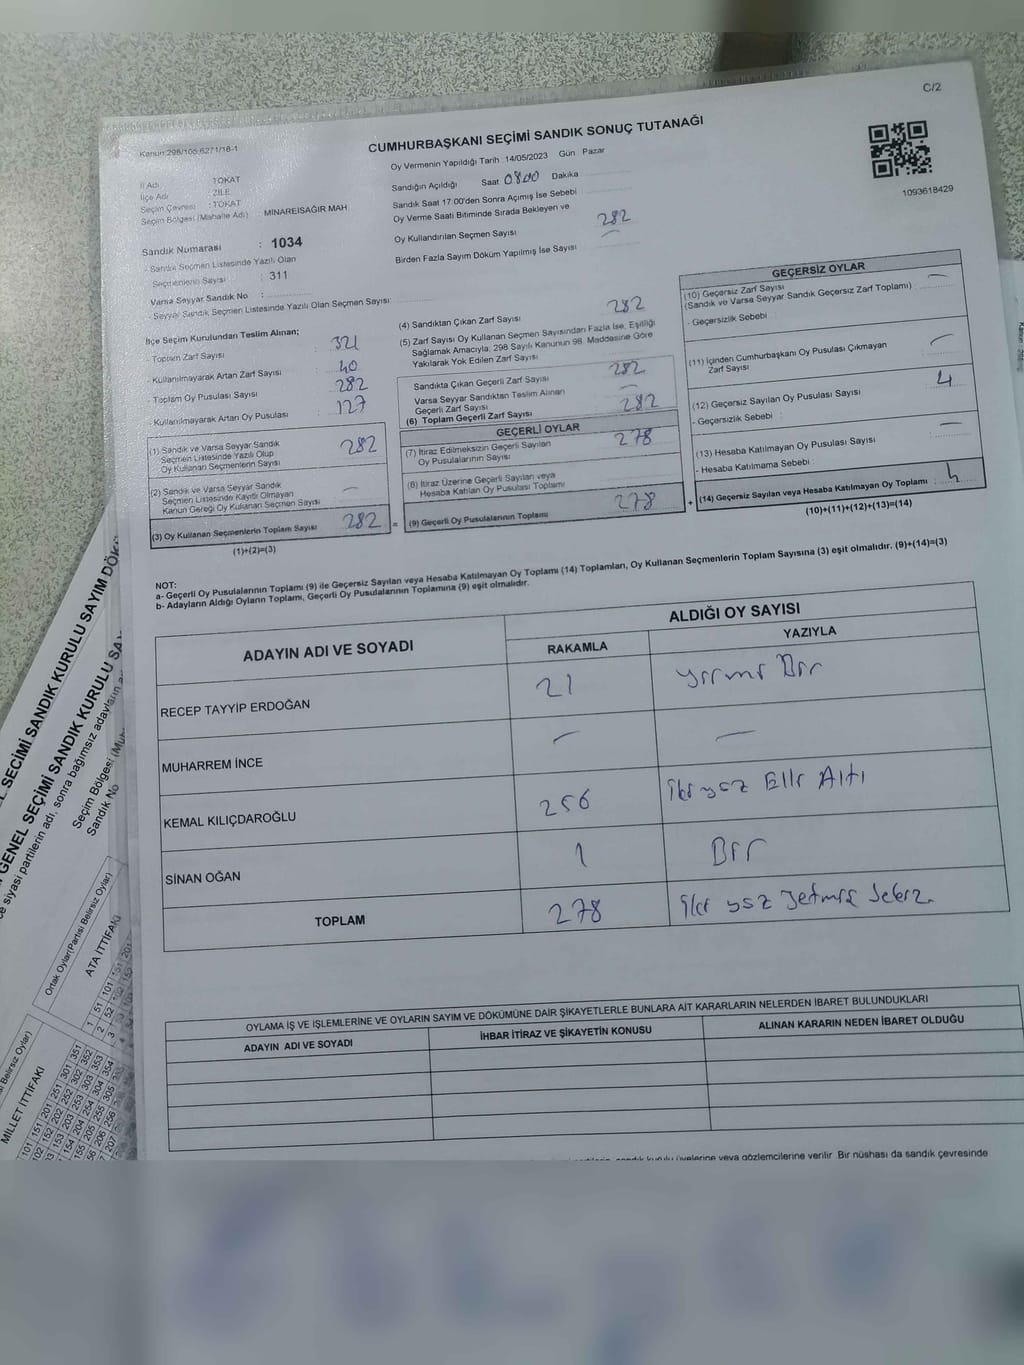 C/2
Kanun:298/105,6271/18-1
CUMHURBAŞKANI SEÇİMİ SANDIK SONUÇ TUTANAĞI
1093618429
İl Adı : TOKAT
İlçe Adı : ZİLE
Seçim Çevresi : TOKAT
Seçim Bölgesi (Mahalle Adı) : MİNAREİSAĞIR MAH
Sandık Numarası : 1034
- Sandık Seçmen Listesinde Yazılı Olan
Seçmenlerin Sayısı : 311
Varsa Seyyar Sandık No :
- Seyyar Sandık Seçmen Listesinde Yazılı Olan Seçmen Sayısı:
Oy Vermenin Yapıldığı Tarih : 14/05/2023 Gün : Pazar
Sandığın Açıldığı Saat 08:00 Dakika
Sandık Saat 17:00'den Sonra Açımış İse Sebebi
Oy Verme Saati Bitiminde Sırada Bekleyen ve
Oy Kullandırılan Seçmen Sayısı 282
Birden Fazla Sayım Döküm Yapılmış İse Sayısı —
İlçe Seçim Kurulundan Teslim Alınan;
- Toplam Zarf Sayısı : 321
- Kullanılmayarak Artan Zarf Sayısı : 40
- Toplam Oy Pusulası Sayısı : 282
- Kullanılmayarak Artan Oy Pusulası : 127
(1) Sandık ve Varsa Seyyar Sandık
Seçmen Listesinde Yazılı Olup
Oy Kullanan Seçmenlerin Sayısı 282
(2) Sandık ve Varsa Seyyar Sandık
Seçmen Listesinde Kayıtlı Olmayan
Kanun Gereği Oy Kullanan Seçmen Sayısı —
(3) Oy Kullanan Seçmenlerin Toplam Sayısı 282 =
(1)+(2)=(3)
(4) Sandıktan Çıkan Zarf Sayısı 282
(5) Zarf Sayısı Oy Kullanan Seçmen Sayısından Fazla İse, Eşitliği
Sağlamak Amacıyla; 298 Sayılı Kanunun 98. Maddesine Göre
Yakılarak Yok Edilen Zarf Sayısı
Sandıkta Çıkan Geçerli Zarf Sayısı 282
Varsa Seyyar Sandıktan Teslim Alınan
Geçerli Zarf Sayısı —
(6) Toplam Geçerli Zarf Sayısı 282
GEÇERLİ OYLAR
(7) İtiraz Edilmeksizin Geçerli Sayılan
Oy Pusulalarının Sayısı 278
(8) İtiraz Üzerine Geçerli Sayılan veya
Hesaba Katılan Oy Pusulası Toplamı
(9) Geçerli Oy Pusulalarının Toplamı 278 +
GEÇERSİZ OYLAR
(10) Geçersiz Zarf Sayısı
(Sandık ve Varsa Seyyar Sandık Geçersiz Zarf Toplamı) —
- Geçersizlik Sebebi :
(11) İçinden Cumhurbaşkanı Oy Pusulası Çıkmayan
Zarf Sayısı —
(12) Geçersiz Sayılan Oy Pusulası Sayısı 4
- Geçersizlik Sebebi :
(13) Hesaba Katılmayan Oy Pusulası Sayısı —
- Hesaba Katılmama Sebebi :
(14) Geçersiz Sayılan veya Hesaba Katılmayan Oy Toplamı : 4
(10)+(11)+(12)+(13)=(14)
NOT:
a- Geçerli Oy Pusulalarının Toplamı (9) ile Geçersiz Sayılan veya Hesaba Katılmayan Oy Toplamı (14) Toplamları, Oy Kullanan Seçmenlerin Toplam Sayısına (3) eşit olmalıdır. (9)+(14)=(3)
b- Adayların Aldığı Oyların Toplamı, Geçerli Oy Pusulalarının Toplamına (9) eşit olmalıdır.
ADAYIN ADI VE SOYADI
ALDIĞI OY SAYISI
RAKAMLA YAZIYLA
RECEP TAYYİP ERDOĞAN 21 yirmi Bir
MUHARREM İNCE — —
KEMAL KILIÇDAROĞLU 256 iki yüz Elli Altı
SİNAN OĞAN 1 Bir
TOPLAM 278 iki yüz yetmiş sekiz.
OYLAMA İŞ VE İŞLEMLERİNE VE OYLARIN SAYIM VE DÖKÜMÜNE DAİR ŞİKAYETLERLE BUNLARA AİT KARARLARIN NELERDEN İBARET BULUNDUKLARI
ADAYIN ADI VE SOYADI İHBAR İTİRAZ VE ŞİKAYETİN KONUSU ALINAN KARARIN NEDEN İBARET OLDUĞU
sandık kurulu üyelerine veya gözlemcilerine verilir. Bir nüshası da sandık çevresinde
SEÇİMİ SANDIK KURULU SAYIM DÖK
GENEL SEÇİMİ SANDIK KURULU SA
siyasi partilerin adı, sonra bağımsız adayların
Seçim Bölgesi (Mu
Sandık No
Ortak Oylar(Partisi Belirsiz Oylar)
ATA İTTİFAKI
Belirsiz Oylar)
MİLLET İTTİFAKI